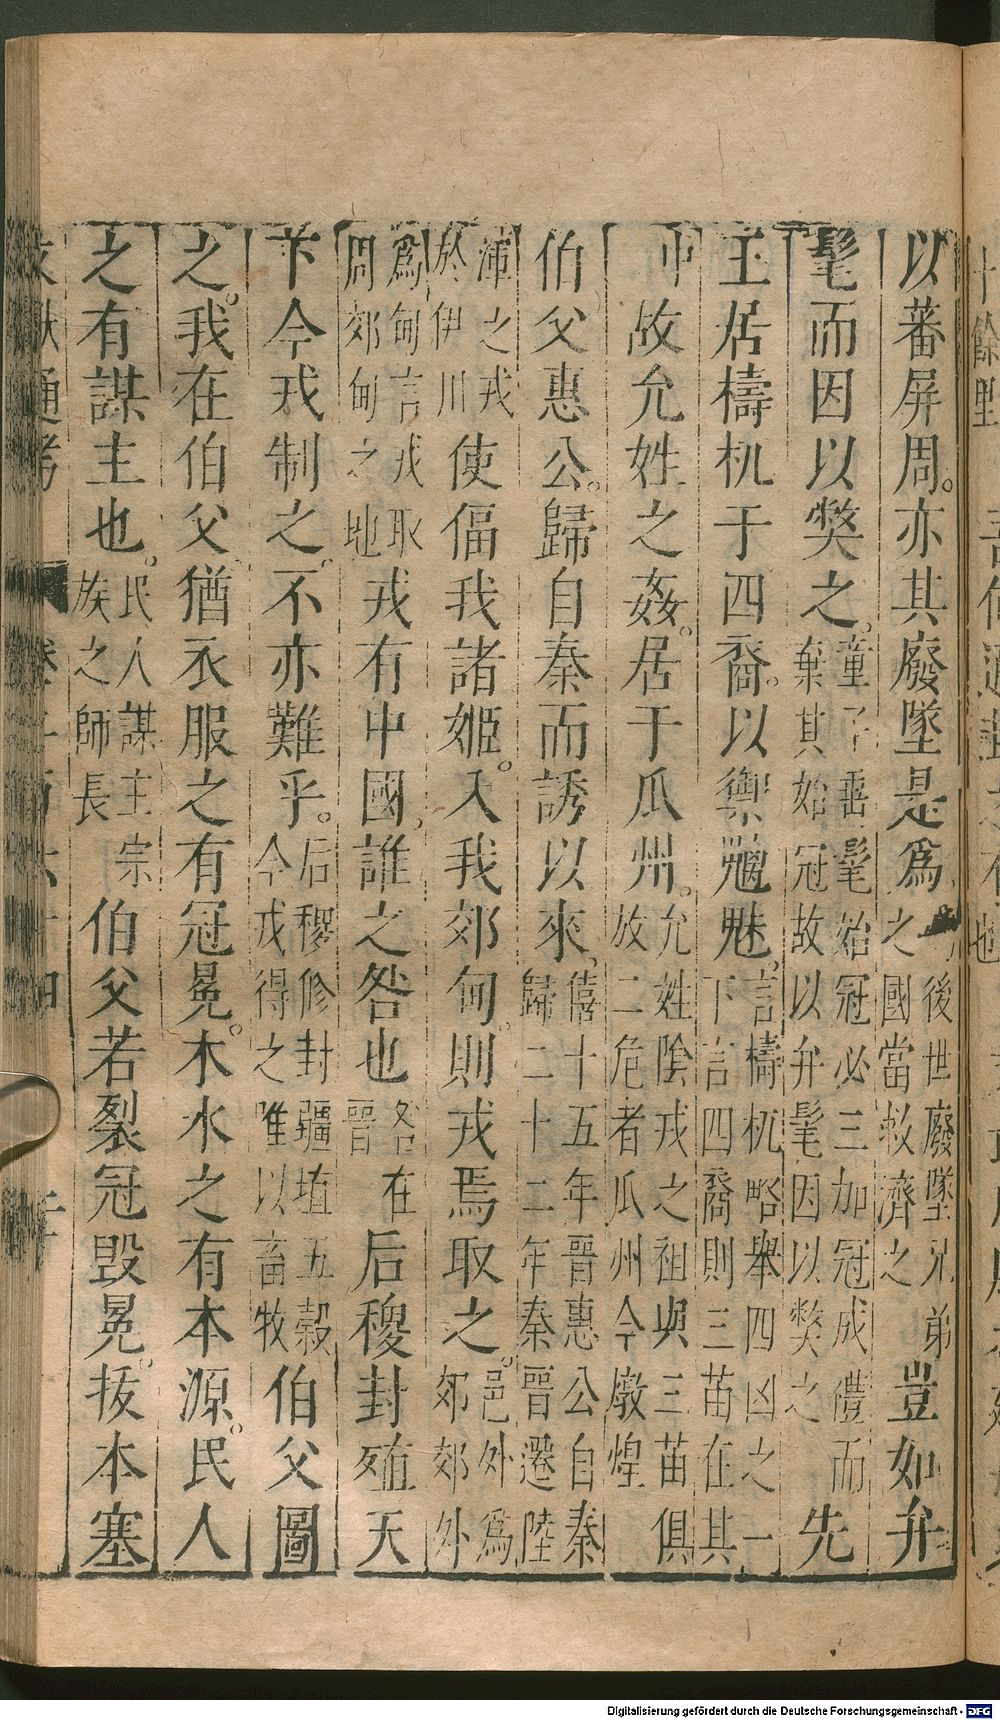 以蕃屏周。亦其廢墜是爲後世廢墜兄弟之國當救濟之豈如弁
髦而因以弊之。童子垂髦始冠必三加冠成禮而棄其始冠故以弁髦因以弊之先
王居檮杌于四裔。以禦魑魅。言檮杌略舉四凶之一下言四裔則三苗在其
中故允姓之姦。居于瓜州。允姓陰戎之祖與三苗俱放二危者瓜州今燉煌
伯父惠公。歸自秦而誘以來。僖十五年晉惠公自秦歸二十二年秦晉遷陸
渾之戎於伊川使偪我諸姬。入我郊甸。則戎焉取之。邑外爲郊郊外
爲甸言戎取周郊甸之地戎有中國。誰之咎也咎在晉后稷封殖天
下今戎制之。不亦難乎。后稷修封疆埴五穀今戎得之唯以畜牧伯父圖
之。我在伯父猶衣服之有冠冕。木水之有本源。民人
之有謀主也。民人謀主宗族之師長伯父若裂冠毀冕。拔本塞
Digitalisierung gefördert durch die Deutsche Forschungsgemeinschaft - DFG